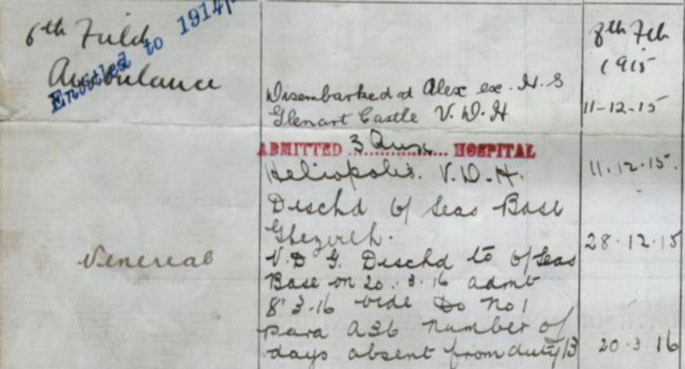 6th Field
Ambulance
Entitled to 1914/
8th Feb
1915
Disembarked at Alex ex. H.S
Glenart Castle V.D.H
11-12-15
ADMITTED 3 Aux. HOSPITAL
Heliopolis. V.D.H.
11.12.15.
Dischd O/Seas Base
Ghezireh.
28.12.15
Venereal
V.D G. Dischd to O/Seas
Base on 20.3.16 admt
8.3.16 vide Do No 1
para A36 number of
days absent from duty 13
20.3.16